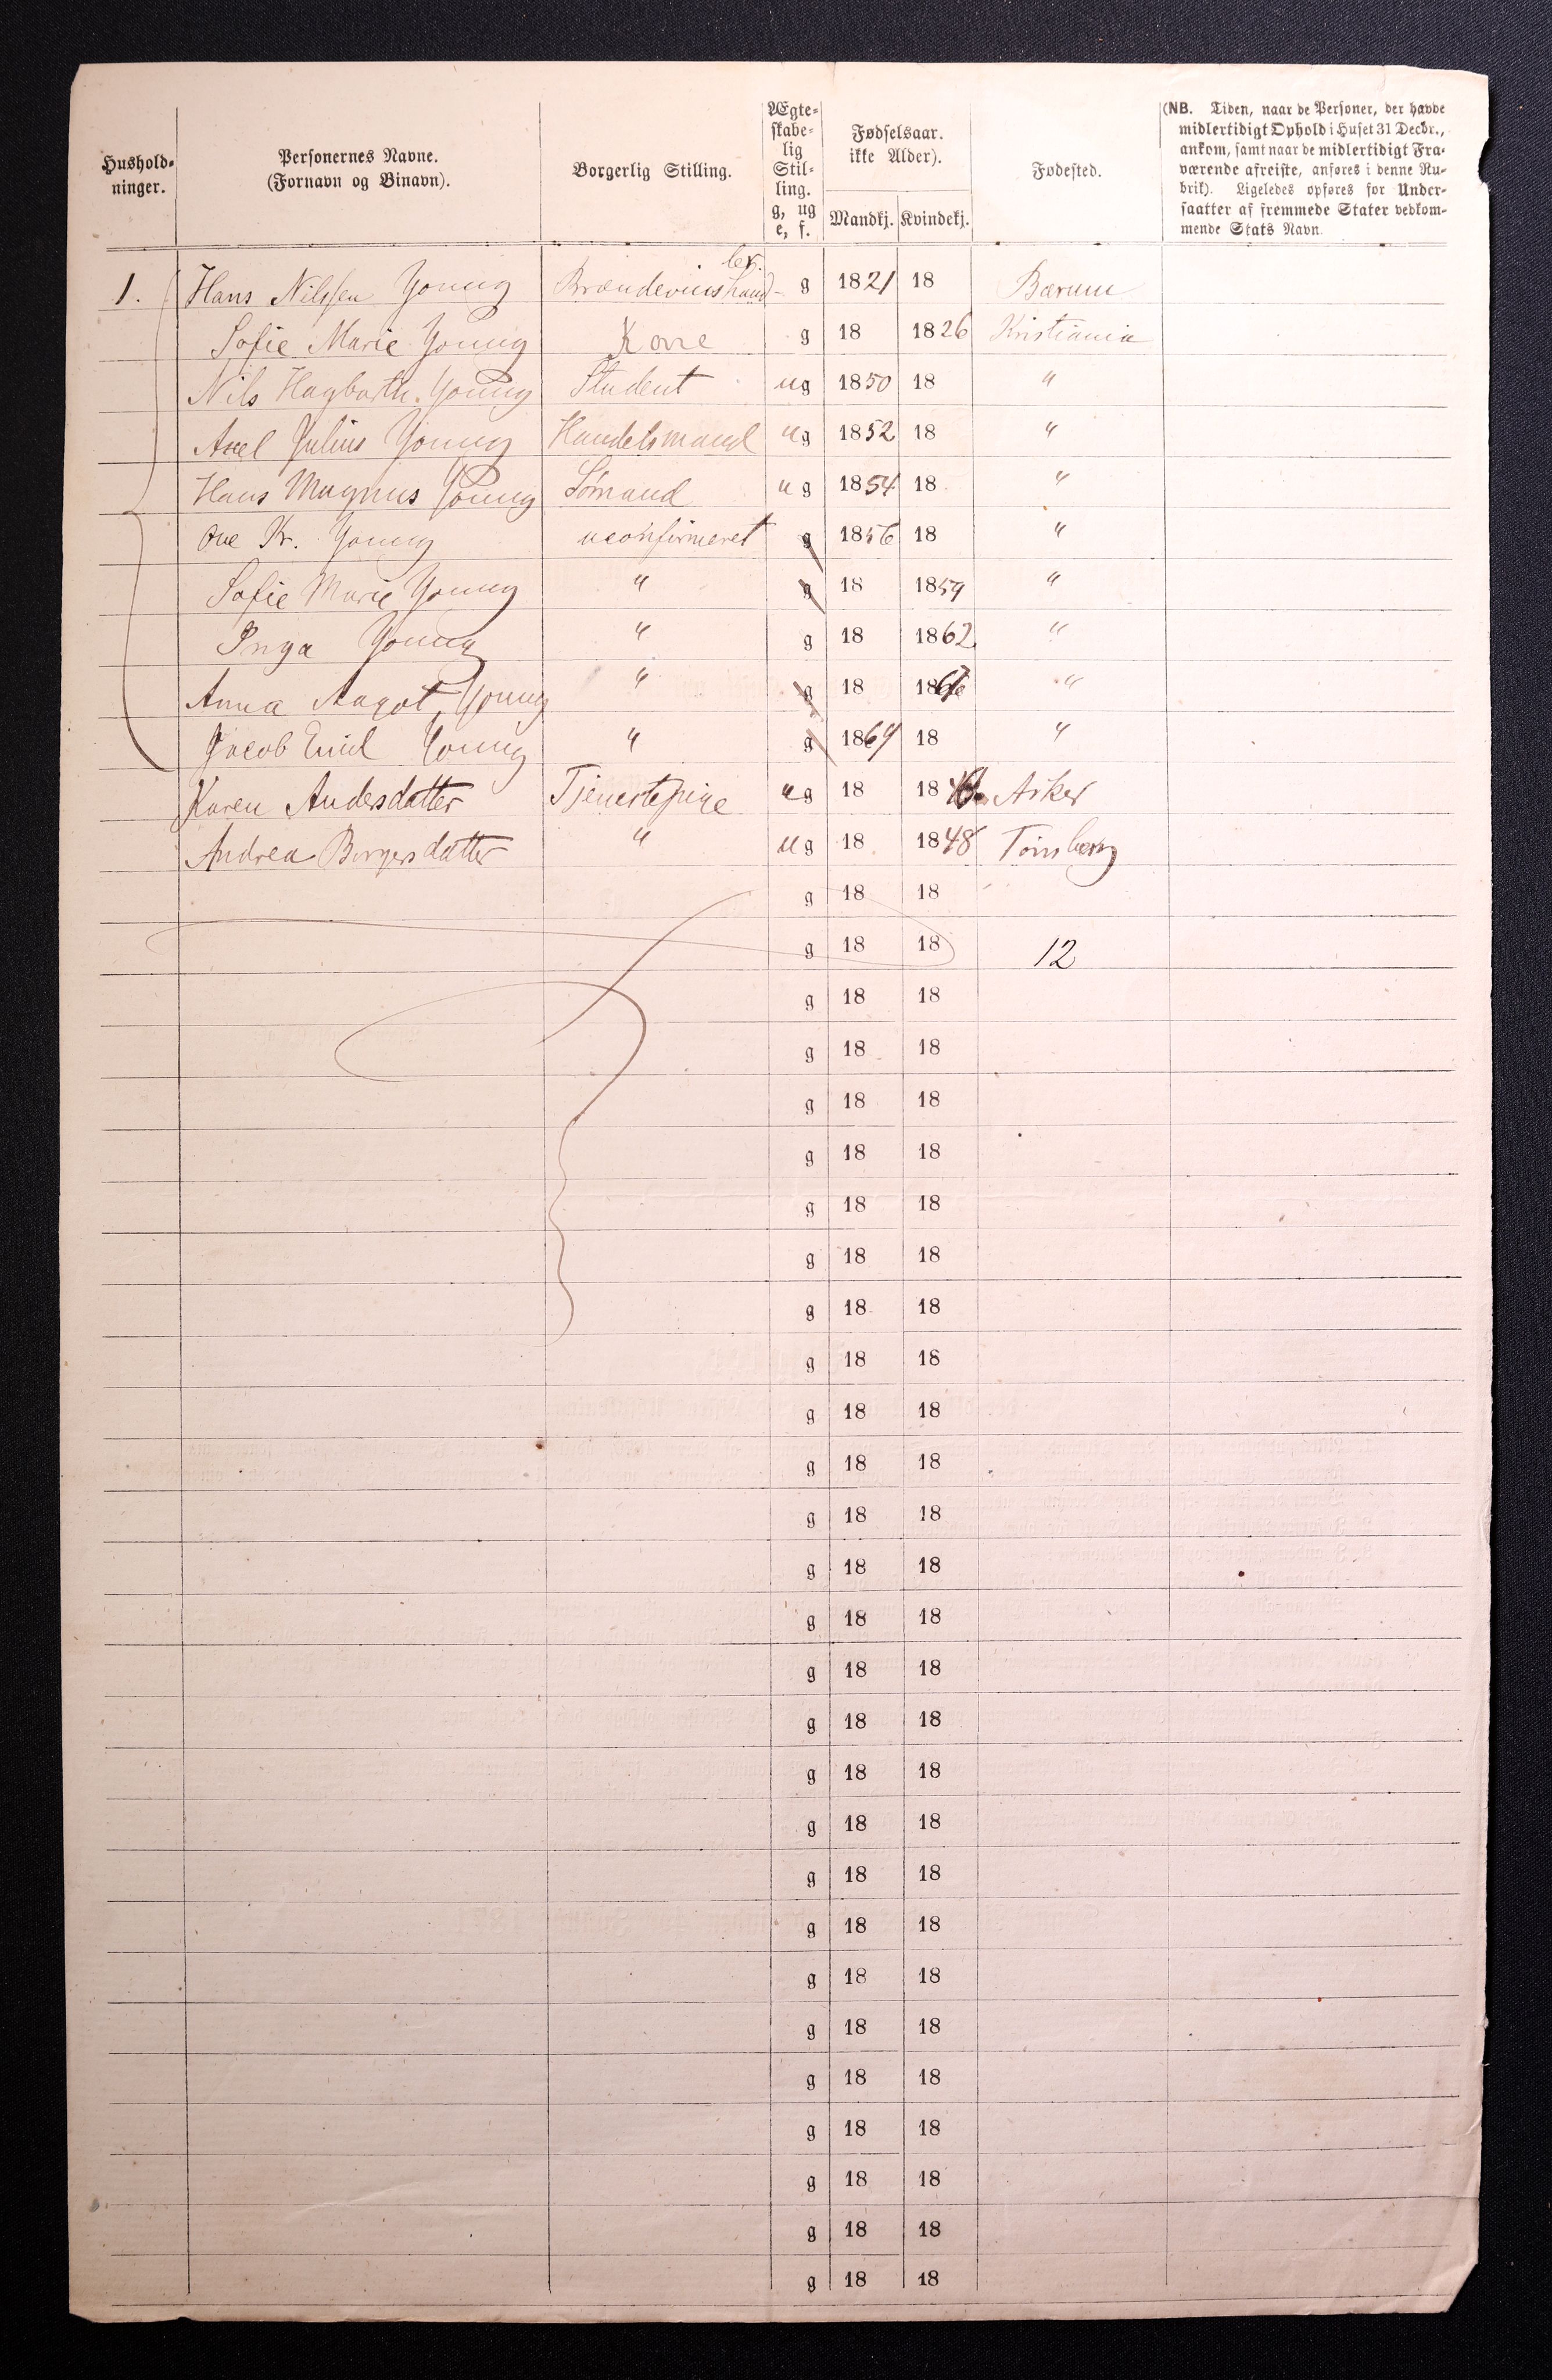 Hushold-
ninger.
Personernes Navne.
(Fornavn og Binavn).
Borgerlig Stilling.
Ægte-
skabe-
lig
Stil-
ling.
g, ug
e, f.
Fødselsaar.
ikke Alder).
Mandkj. Kvindekj.
Fødested.
(NB. Tiden, naar de Personer, der havde
midlertidigt Ophold i Huset 31 Decbr.,
ankom, samt naar de midlertidigt Fra-
værende afreiste, anføres i denne Ru-
brik). Ligeledes opføres for Under-
saatter af fremmede Stater vedkom-
mende Stats Navn.
ler.
1. Hans Nilssen Young Brændevinshand- g 1821 18 Bærum
Sofie Marie Young Kone g 18 1826 Kristiania
Nils Hagbarth. Young Student ug 1850 18 "
Axel Julius Young Handelsmand ug 1852 18 "
Hans Magnus Young Sømand ug 1854 18 "
Ove Kr. Young uconfirmeret g 1856 18 "
Sofie Marie Young " g 18 1859 "
Inga Young " g 18 1862 "
Anna Aagot Young " g 18 18 "
Jacob Emil Young " g 1869 18 "
Karen Andersdatter Tjenestepige ug 18 18 Asker
Andrea Borgersdatter " ug 18 1848 Tønsberg
g 18 18
g 18 18 12
g 18 18
g 18 18
g 18 18
g 18 18
g 18 18
g 18 18
g 18 18
g 18 18
g 18 18
g 18 18
g 18 18
g 18 18
g 18 18
g 18 18
g 18 18
g 18 18
g 18 18
g 18 18
g 18 18
g 18 18
g 18 18
g 18 18
g 18 18
g 18 18
g 18 18
g 18 18